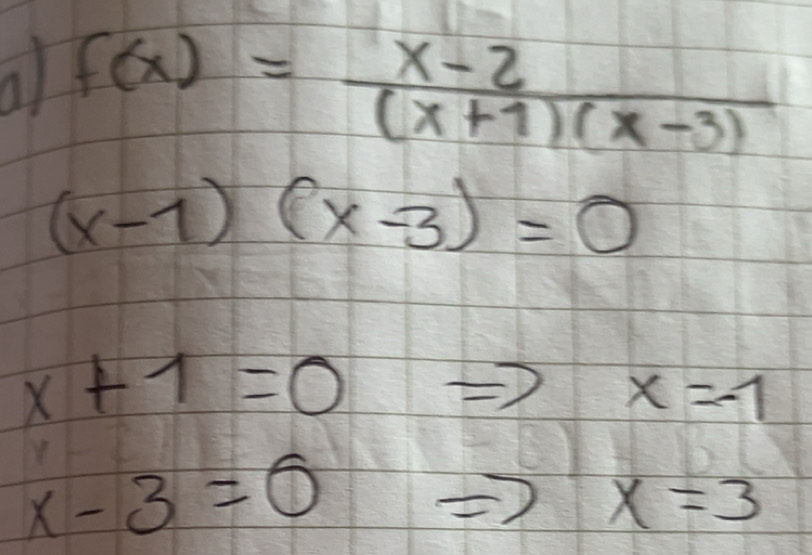 a) f(x) = x-2 / (x+1)(x-3)
(x-1) (x-3) = 0
x+1 = 0 => x = -1
x-3 = 0 => x = 3